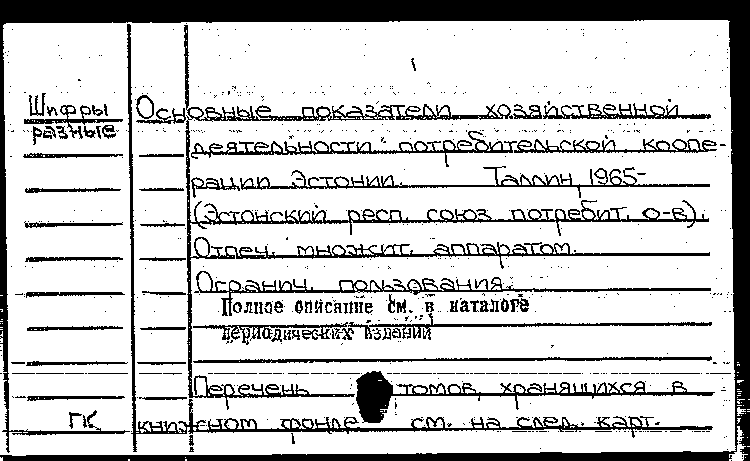 Шифры Основные показатели хозяйственной
разные деятельности потребительской коопе-
рации Эстонии. Таллин, 1965-
(Эстонский респ. союз потребит. о-в).
Отпеч. множит. аппаратом.
Огранич. пользования.
Полное описание см. в каталоге
периодических изданий
Перечень томов, хранящихся в
ГК книжном фонде см. на след. карт.